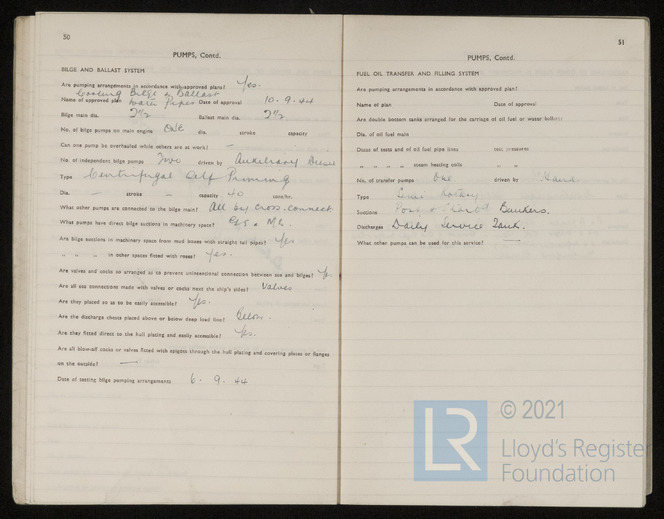 50
PUMPS, Contd.
BILGE AND BALLAST SYSTEM
Are pumping arrangements in accordance with approved plans? Yes.
Cooling Bilge & Ballast
Name of approved plan Water Pipes Date of approval 10.9.44
Bilge main dia. 2 1/2 Ballast main dia. 2 1/2
No. of bilge pumps on main engine One dia. stroke capacity
Can one pump be overhauled while others are at work? —
No. of independent bilge pumps Two driven by Auxiliary
Type Centrifugal Self Priming
Dia. — stroke — capacity 40 tons/hr.
What other pumps are connected to the bilge main? All by cross-connect
What pumps have direct bilge suctions in machinery space?
Are bilge suctions in machinery space from mud boxes with straight tail pipes? Yes
" " " in other spaces fitted with roses? Yes.
Are valves and cocks so arranged as to prevent unintentional connection between sea and bilges?
Are all sea connections made with valves or cocks next the ship's sides? Valves
Are they placed so as to be easily accessible? Yes.
Are the discharge chests placed above or below deep load line? Below.
Are they fitted direct to the hull plating and easily accessible? Yes.
Are all blow-off cocks or valves fitted with spigots through the hull plating and covering plates or flanges
on the outside? —
Date of testing bilge pumping arrangements 6.9.44
51
PUMPS, Contd.
FUEL OIL TRANSFER AND FILLING SYSTEM
Are pumping arrangements in accordance with approved plan?
Name of plan Date of approval
Are double bottom tanks arranged for the carriage of oil fuel or water ballast?
Dia. of oil fuel main
Dates of tests and of oil fuel pipe lines test pressures
" " " " steam heating coils " "
No. of transfer pumps One driven by Hand
Type Semi Rotary
Suctions Port & Starbd Bunkers.
Discharges Daily Service Tank.
What other pumps can be used for this service? —
LR
© 2021
Lloyd's Register
Foundation